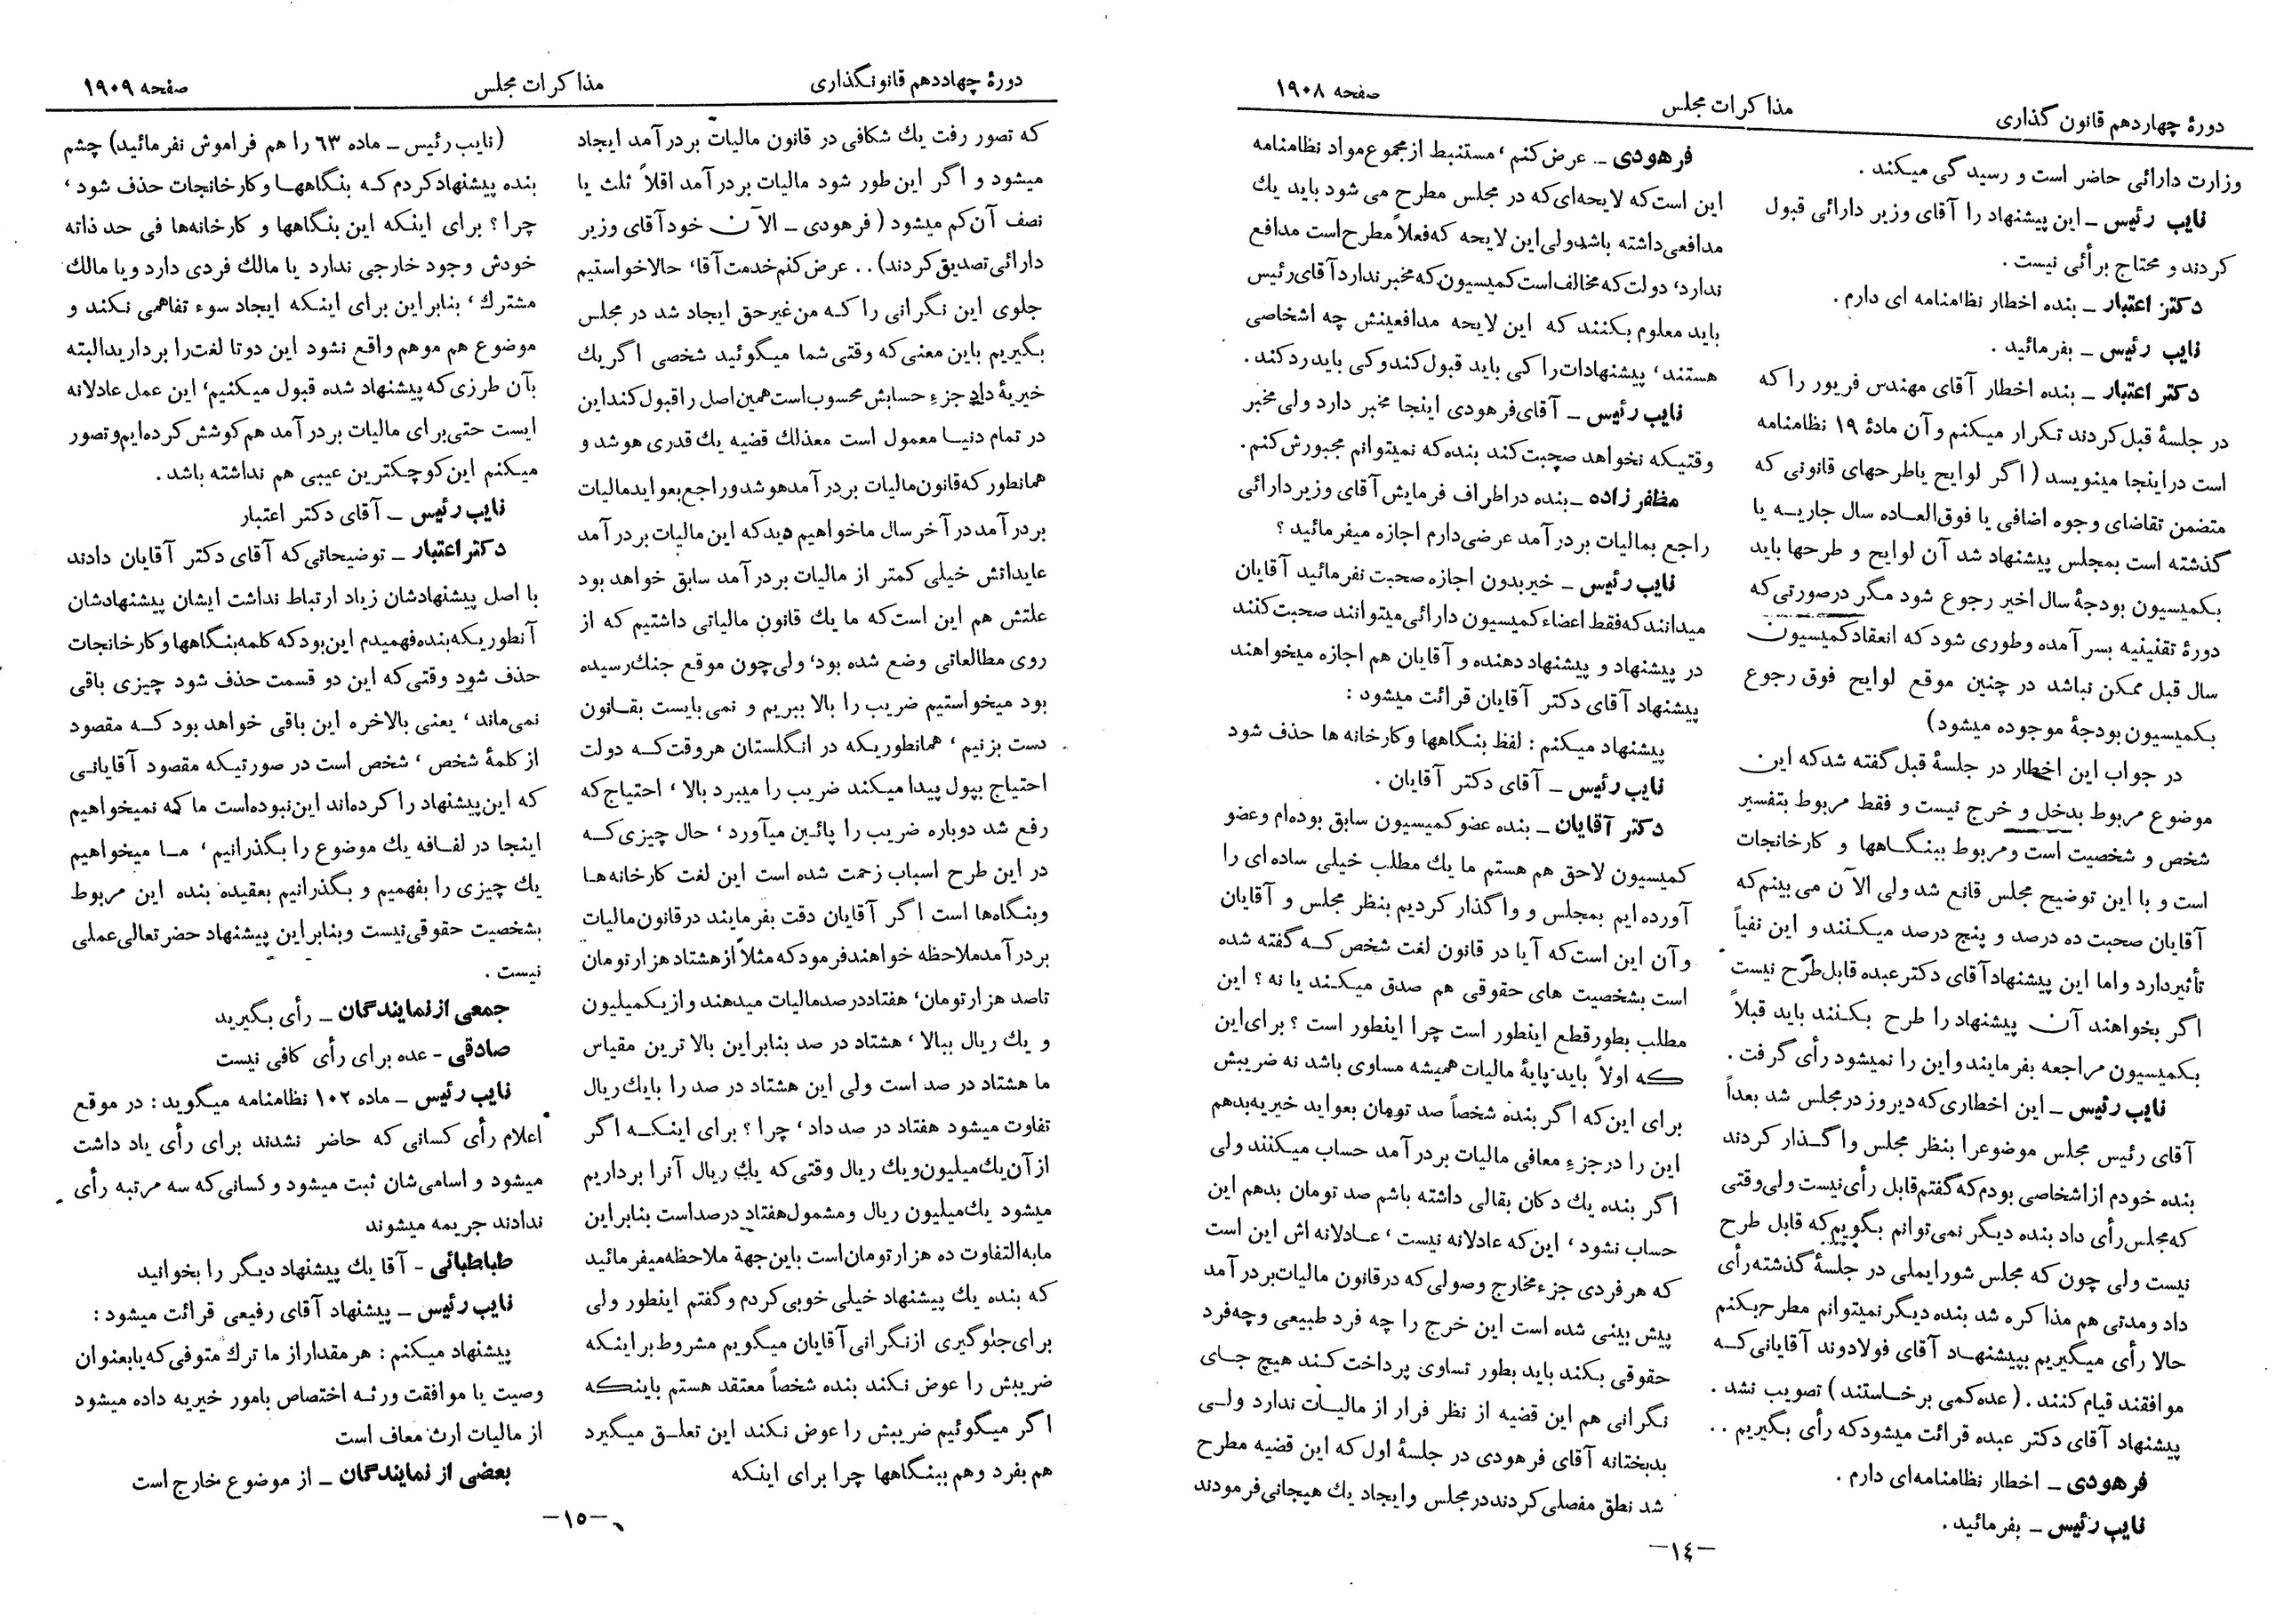 دورهٔ چهاردهم قانون گذاری
مذاکرات مجلس
صفحه ۱۹۰۸
وزارت دارائی حاضر است و رسیدگی میکند .
نایب رئیس ــ این پیشنهاد را آقای وزیر دارائی قبول
کردند و محتاج برأئی نیست .
دکتر اعتبار ــ بنده اخطار نظامنامه ای دارم .
نایب رئیس ــ بفرمائید .
دکتر اعتبار ــ بنده اخطار آقای مهندس فریور را که
در جلسهٔ قبل کردند تکرار میکنم و آن مادهٔ ۱۹ نظامنامه
است در اینجا مینویسد (اگر لوایح یا طرحهای قانونی که
متضمن تقاضای وجوه اضافی یا فوق‌العاده سال جاریه یا
گذشته است بمجلس پیشنهاد شد آن لوایح و طرحها باید
بکمیسیون بودجهٔ سال اخیر رجوع شود مگر درصورتی که
دورهٔ تقنینیه بسر آمده وطوری شود که انعقاد کمیسیون
سال قبل ممکن نباشد در چنین موقع لوایح فوق رجوع
بکمیسیون بودجهٔ موجوده میشود)
در جواب این اخطار در جلسهٔ قبل گفته شد که این
موضوع مربوط بدخل و خرج نیست و فقط مربوط بتفسیر
شخص و شخصیت است و مربوط ببنگاهها و کارخانجات
است و با این توضیح مجلس قانع شد ولی الآن می بینم که
آقایان صحبت ده درصد و پنج درصد میکنند و این نفیاً
تأثیر دارد و اما این پیشنهاد آقای دکتر عبده قابل طرح نیست
اگر بخواهند آن پیشنهاد را طرح بکنند باید قبلاً
بکمیسیون مراجعه بفرمایند و این را نمیشود رأی گرفت .
نایب رئیس ــ این اخطاری که دیروز در مجلس شد بعداً
آقای رئیس مجلس موضوعرا بنظر مجلس واگذار کردند
بنده خودم از اشخاصی بودم که گفتم قابل رأی نیست ولی وقتی
که مجلس رأی داد بنده دیگر نمی‌توانم بگویم که قابل طرح
نیست ولی چون که مجلس شورایملی در جلسهٔ گذشته رأی
داد و مدتی هم مذاکره شد بنده دیگر نمیتوانم مطرح بکنم
حالا رأی میگیریم بپیشنهاد آقای فولادوند آقایانی که
موافقند قیام کنند . (عده کمی برخاستند) تصویب نشد .
پیشنهاد آقای دکتر عبده قرائت میشود که رأی بگیریم . .
فرهودی ــ اخطار نظامنامه‌ای دارم .
نایب رئیس ــ بفرمائید .
فرهودی ــ عرض کنم ، مستنبط از مجموع مواد نظامنامه
این است که لایحه‌ای که در مجلس مطرح می شود باید یك
مدافعی داشته باشد ولی این لایحه که فعلاً مطرح است مدافع
ندارد، دولت که مخالف است کمیسیون که مخبر ندارد آقای رئیس
باید معلوم بکنند که این لایحه مدافعینش چه اشخاصی
هستند ، پیشنهادات را کی باید قبول کند و کی باید رد کند .
نایب رئیس ــ آقای فرهودی اینجا مخبر دارد ولی مخبر
وقتیکه نخواهد صحبت کند بنده که نمیتوانم مجبورش کنم .
مظفر زاده ــ بنده در اطراف فرمایش آقای وزیر دارائی
راجع بمالیات بر درآمد عرضی دارم اجازه میفرمائید ؟
نایب رئیس ــ خیر بدون اجازه صحبت نفرمائید آقایان
میدانند که فقط اعضاء کمیسیون دارائی میتوانند صحبت کنند
در پیشنهاد و پیشنهاد دهنده و آقایان هم اجازه میخواهند
پیشنهاد آقای دکتر آقایان قرائت میشود :
پیشنهاد میکنم : لفظ بنگاهها و کارخانه ها حذف شود
نایب رئیس ــ آقای دکتر آقایان .
دکتر آقایان ــ بنده عضو کمیسیون سابق بوده‌ام و عضو
کمیسیون لاحق هم هستم ما یك مطلب خیلی ساده ای را
آورده ایم بمجلس و واگذار کردیم بنظر مجلس و آقایان
و آن این است که آیا در قانون لغت شخص که گفته شده
است بشخصیت های حقوقی هم صدق میکند یا نه ؟ این
مطلب بطور قطع اینطور است چرا اینطور است ؟ برای این
که اولاً باید پایهٔ مالیات همیشه مساوی باشد نه ضریبش
برای این که اگر بنده شخصاً صد تومان بعواید خیریه بدهم
این را در جزء معافی مالیات بر درآمد حساب میکنند ولی
اگر بنده یك دکان بقالی داشته باشم صد تومان بدهم این
حساب نشود ، این که عادلانه نیست ، عادلانه اش این است
که هر فردی جزء مخارج وصولی که در قانون مالیات بر درآمد
پیش بینی شده است این خرج را چه فرد طبیعی و چه فرد
حقوقی بکند باید بطور تساوی پرداخت کند هیچ جای
نگرانی هم این قضیه از نظر فرار از مالیات ندارد ولی
بدبختانه آقای فرهودی در جلسهٔ اول که این قضیه مطرح
شد نطق مفصلی کردند در مجلس و ایجاد یك هیجانی فرمودند
ــ۱٤ــ
دورهٔ چهاددهم قانونگذاری
مذاکرات مجلس
صفحه ۱۹۰۹
که تصور رفت یك شکافی در قانون مالیات بر درآمد ایجاد
میشود و اگر این طور شود مالیات بر درآمد اقلاً ثلث یا
نصف آن کم میشود (فرهودی ــ الآن خود آقای وزیر
دارائی تصدیق کردند) . . عرض کنم خدمت آقا، حالا خواستیم
جلوی این نگرانی را که من غیر حق ایجاد شد در مجلس
بگیریم باین معنی که وقتی شما میگوئید شخصی اگر یك
خیریهٔ داد جزء حسابش محسوب است همین اصل را قبول کند این
در تمام دنیا معمول است معذلك قضیه یك قدری هو شد و
همانطور که قانون مالیات بر درآمد هو شد و راجع بعواید مالیات
بر درآمد در آخر سال ما خواهیم دید که این مالیات بر درآمد
عایداتش خیلی کمتر از مالیات بر درآمد سابق خواهد بود
علتش هم این است که ما یك قانون مالیاتی داشتیم که از
روی مطالعاتی وضع شده بود، ولی چون موقع جنك رسیده
بود میخواستیم ضریب را بالا ببریم و نمی بایست بقانون
دست بزنیم ، همانطوریکه در انگلستان هر وقت که دولت
احتیاج بپول پیدا میکند ضریب را میبرد بالا ، احتیاج که
رفع شد دوباره ضریب را پائین میآورد ، حال چیزی که
در این طرح اسباب زحمت شده است این لغت کارخانه ها
و بنگاه‌ها است اگر آقایان دقت بفرمایند در قانون مالیات
بر درآمد ملاحظه خواهند فرمود که مثلاً از هشتاد هزار تومان
تا صد هزار تومان، هفتاد در صد مالیات میدهند و از یکمیلیون
و یك ریال ببالا ، هشتاد در صد بنابر این بالا ترین مقیاس
ما هشتاد در صد است ولی این هشتاد در صد را با یك ریال
تفاوت میشود هفتاد در صد داد ، چرا ؟ برای اینکه اگر
از آن یك میلیون و یك ریال وقتی که یك ریال آنرا برداریم
میشود یك میلیون ریال و مشمول هفتاد درصد است بنابر این
مابه التفاوت ده هزار تومان است باین جهة ملاحظه میفرمائید
که بنده یك پیشنهاد خیلی خوبی کردم و گفتم اینطور ولی
برای جلوگیری از نگرانی آقایان میگویم مشروط بر اینکه
ضریبش را عوض نکند بنده شخصاً معتقد هستم باینکه
اگر میگوئیم ضریبش را عوض نکند این تعلق میگیرد
هم بفرد و هم ببنگاهها چرا برای اینکه
(نایب رئیس ــ ماده ۶۳ را هم فراموش نفرمائید) چشم
بنده پیشنهاد کردم که بنگاهها و کارخانجات حذف شود ،
چرا ؟ برای اینکه این بنگاهها و کارخانه‌ها فی حد ذاته
خودش وجود خارجی ندارد یا مالك فردی دارد و یا مالك
مشترك ، بنابر این برای اینکه ایجاد سوء تفاهمی نکند و
موضوع هم موهم واقع نشود این دو تا لغت را بردارید البته
بآن طرزی که پیشنهاد شده قبول میکنیم، این عمل عادلانه
ایست حتی برای مالیات بر درآمد هم کوشش کرده‌ایم و تصور
میکنم این کوچکترین عیبی هم نداشته باشد .
نایب رئیس ــ آقای دکتر اعتبار
دکتر اعتبار ــ توضیحاتی که آقای دکتر آقایان دادند
با اصل پیشنهادشان زیاد ارتباط نداشت ایشان پیشنهادشان
آنطوریکه بنده فهمیدم این بود که کلمه بنگاهها و کارخانجات
حذف شود وقتی که این دو قسمت حذف شود چیزی باقی
نمی‌ماند ، یعنی بالاخره این باقی خواهد بود که مقصود
از کلمهٔ شخص ، شخص است در صورتیکه مقصود آقایانی
که این پیشنهاد را کرده‌اند این نبوده است ما که نمیخواهیم
اینجا در لفافه یك موضوع را بگذرانیم ، ما میخواهیم
یك چیزی را بفهمیم و بگذرانیم بعقیده بنده این مربوط
بشخصیت حقوقی نیست و بنابر این پیشنهاد حضرتعالی عملی
نیست .
جمعی از نمایندگان ــ رأی بگیرید
صادقی - عده برای رأی کافی نیست
نایب رئیس ــ ماده ۱۰۲ نظامنامه میگوید : در موقع
اعلام رأی کسانی که حاضر نشدند برای رأی یاد داشت
میشود و اسامی شان ثبت میشود و کسانی که سه مرتبه رأی
ندادند جریمه میشوند
طباطبائی - آقا یك پیشنهاد دیگر را بخوانید
نایب رئیس ــ پیشنهاد آقای رفیعی قرائت میشود :
پیشنهاد میکنم : هر مقدار از ما ترك متوفی که یا بعنوان
وصیت یا موافقت ورثه اختصاص بامور خیریه داده میشود
از مالیات ارث معاف است
بعضی از نمایندگان ــ از موضوع خارج است
ــ۱۵ــ